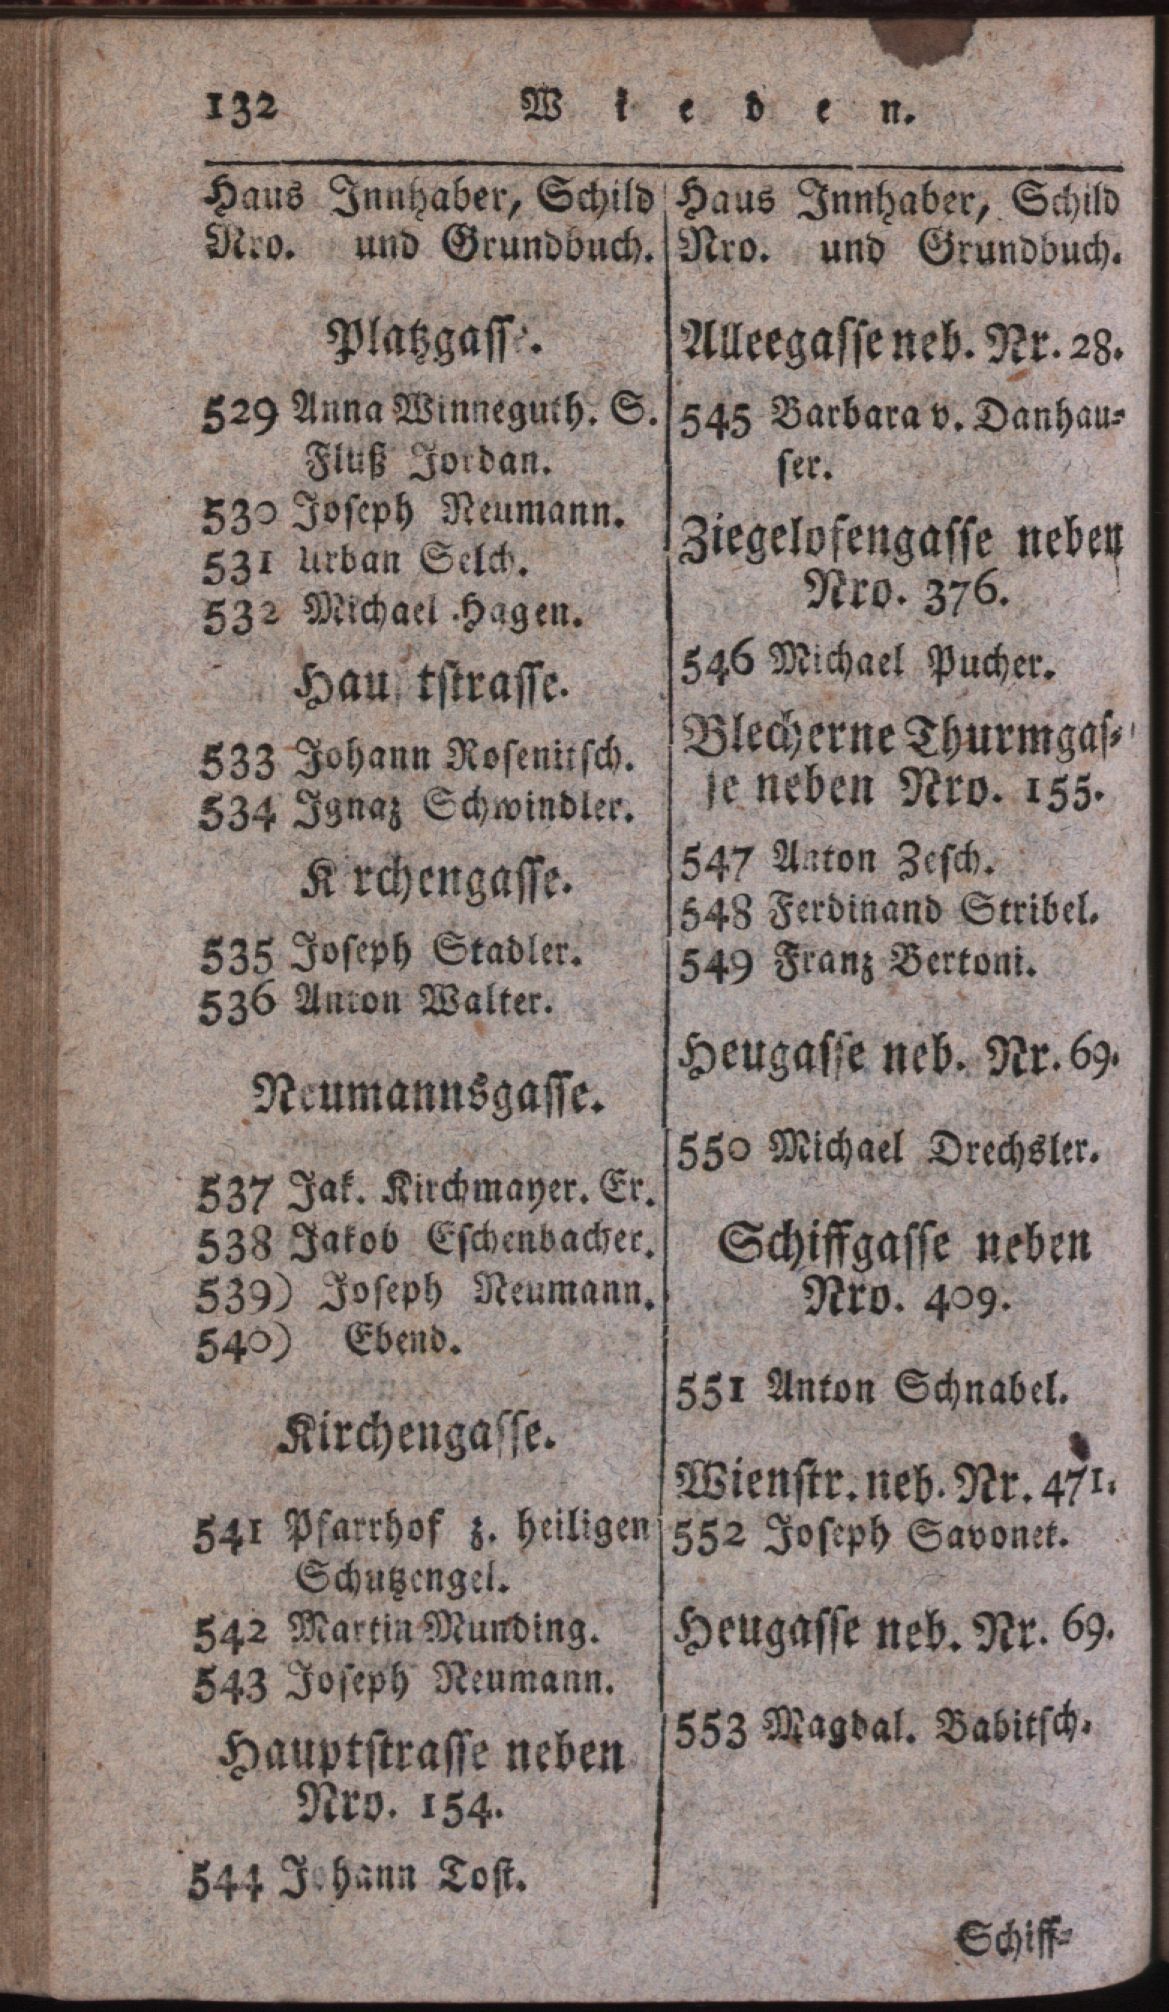 132 Wieden.
Haus Innhaber, Schild
Nro. und Grundbuch.
Platzgasse.
529 Anna Winneguth. S.
Fluß Jordan.
530 Joseph Neumann.
531 Urban Selch.
532 Michael Hagen.
Hau tstrasse.
533 Johann Rosenitsch.
534 Ignaz Schwindler.
K rchengasse.
535 Joseph Stadler.
536 Anton Walter.
Neumannsgasse.
537 Jak. Kirchmayer. Er.
538 Jakob Eschenbacher.
539) Joseph Neumann.
540) Ebend.
Kirchengasse.
541 Pfarrhof z. heiligen
Schutzengel.
542 Martin Munding.
543 Joseph Neumann.
Hauptstrasse neben
Nro. 154.
544 Johann Tost.
Haus Innhaber, Schild
Nro. und Grundbuch.
Alleegasse neb. Nr. 28.
545 Barbara v. Danhau-
ser.
Ziegelofengasse neben
Nro. 376.
546 Michael Pucher.
Blecherne Thurmgas-
se neben Nro. 155.
547 Anton Zesch.
548 Ferdinand Stribel.
549 Franz Bertoni.
Heugasse neb. Nr. 69.
550 Michael Drechsler.
Schiffgasse neben
Nro. 409.
551 Anton Schnabel.
Wienstr. neb. Nr. 471.
552 Joseph Savonet.
Heugasse neb. Nr. 69.
553 Magdal. Babitsch.
Schiff-